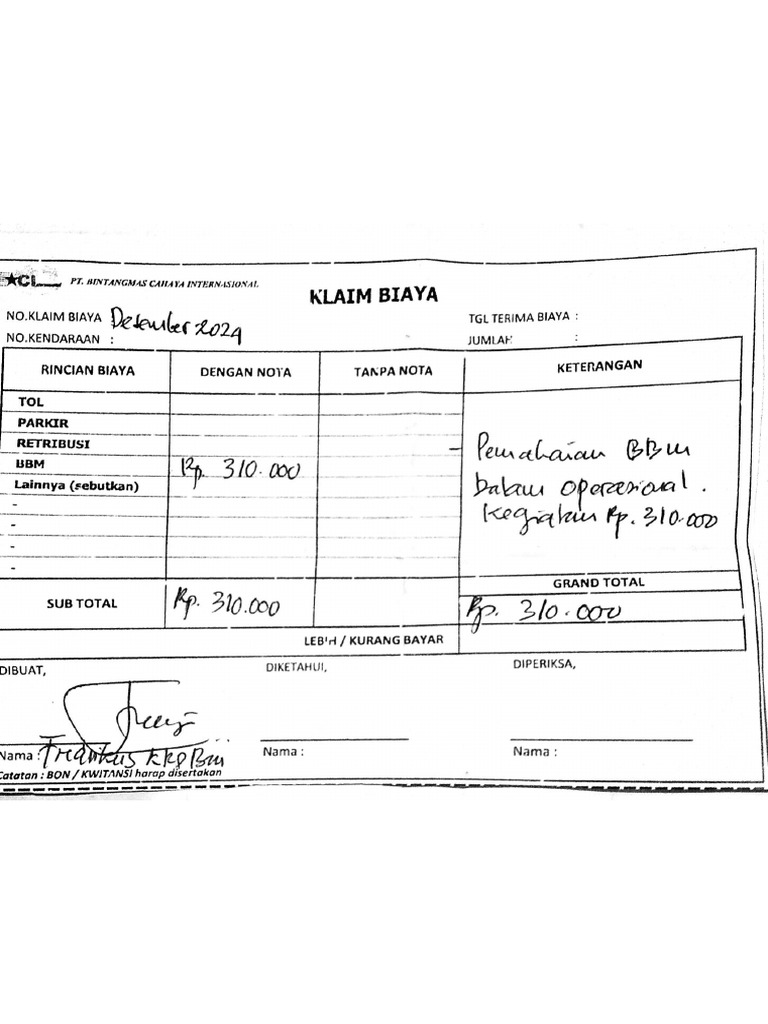 ★CL PT. BINTANGMAS CAHAYA INTERNASIONAL
KLAIM BIAYA
NO.KLAIM BIAYA Desember 2024
TGL TERIMA BIAYA :
NO.KENDARAAN :
JUMLAH :
RINCIAN BIAYA DENGAN NOTA TANPA NOTA KETERANGAN
TOL
PARKIR
RETRIBUSI
BBM Rp. 310.000
Lainnya (sebutkan)
-
-
-
-
- Pemakaian BBM
Dalam operasional.
kegiatan Rp. 310.000
SUB TOTAL Rp. 310.000
GRAND TOTAL
Rp. 310.000
LEBIH / KURANG BAYAR
DIBUAT, DIKETAHUI, DIPERIKSA,
Nama : Fredikus
Nama :
Nama :
Catatan : BON / KWITANSI harap disertakan